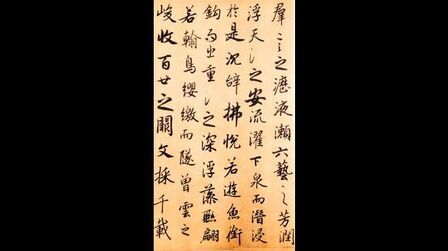 羣言之瀝液漱六藝之芳潤
浮天淵之安流濯下泉而潛浸
於是沉辭拂悅若遊魚銜
鉤而出重淵之深浮藻聯翩
若翰鳥纓繳而隧曾雲之
峻收百世之闕文採千載